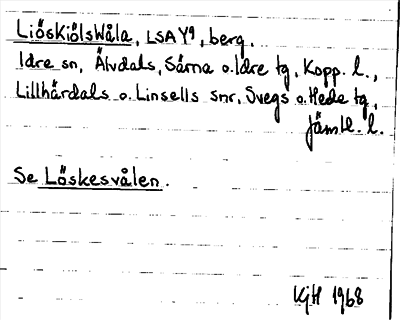 LiösKiölsWåla, LSA Y⁹, berg.
Idre sn, Älvdals, Särna o. Idre tg, Kopp. l.,
Lillhärdals o. Linsells snr, Svegs o. Hede tg,
Jämtl. l.
Se Löskesvålen.
KjH 1968